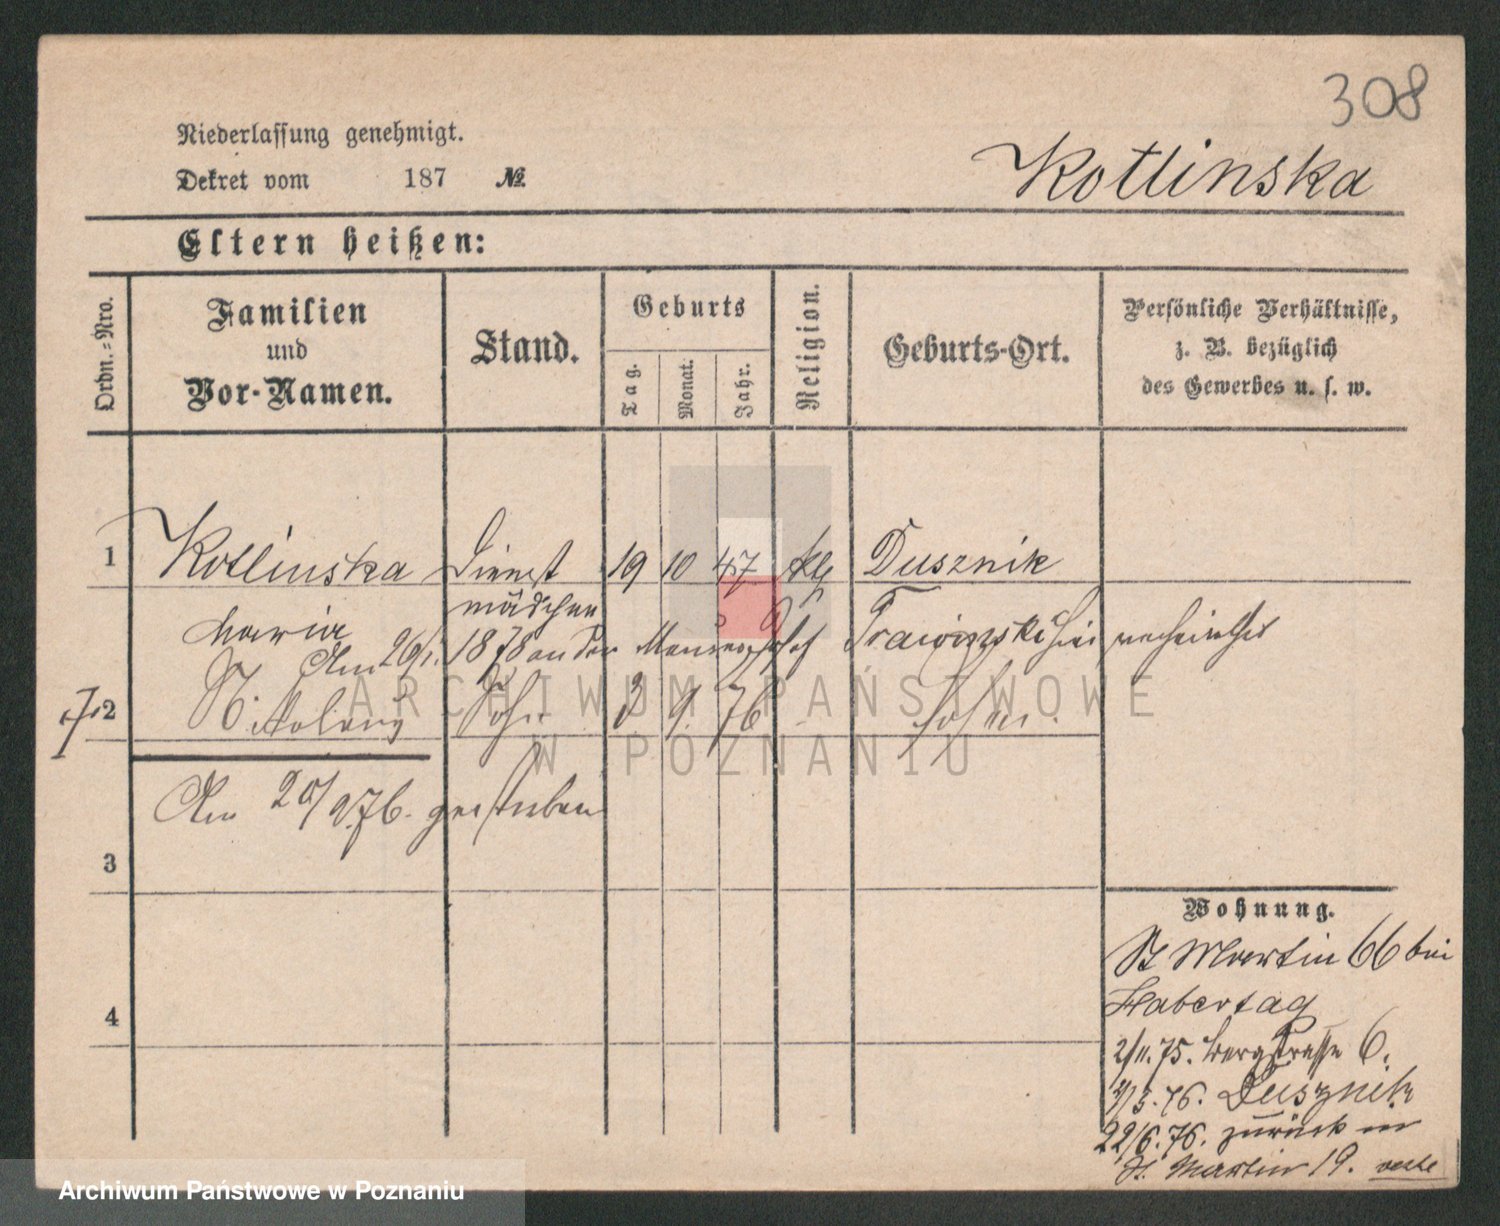 308
Niederlassung genehmigt.
Dekret vom 187 №
Kotlinska
Eltern heißen:
Ordn.-Nro.
Familien
und
Vor-Namen.
Stand.
Geburts
Tag.
Monat.
Jahr.
Religion.
Geburts-Ort.
Persönliche Verhältnisse,
z. B. bezüglich
des Gewerbes u. s. w.
1 Kotlinska Dienst 19 10 47 Dusznik
Maria mädchen
Am 26/1. 1878 an den Trawinski hier verheirathet
2 Sohn 3 9. 76
Am 20/9.76. gestorben
3
4
Wohnung.
St Martin 66 bei
Habertag
2/11.75. Bergstrasse 6.
3.76. Dusznik
22/6.76. zurück in
St. Martin 19.
ARCHIWUM PAŃSTWOWE
W POZNANIU
Archiwum Państwowe w Poznaniu